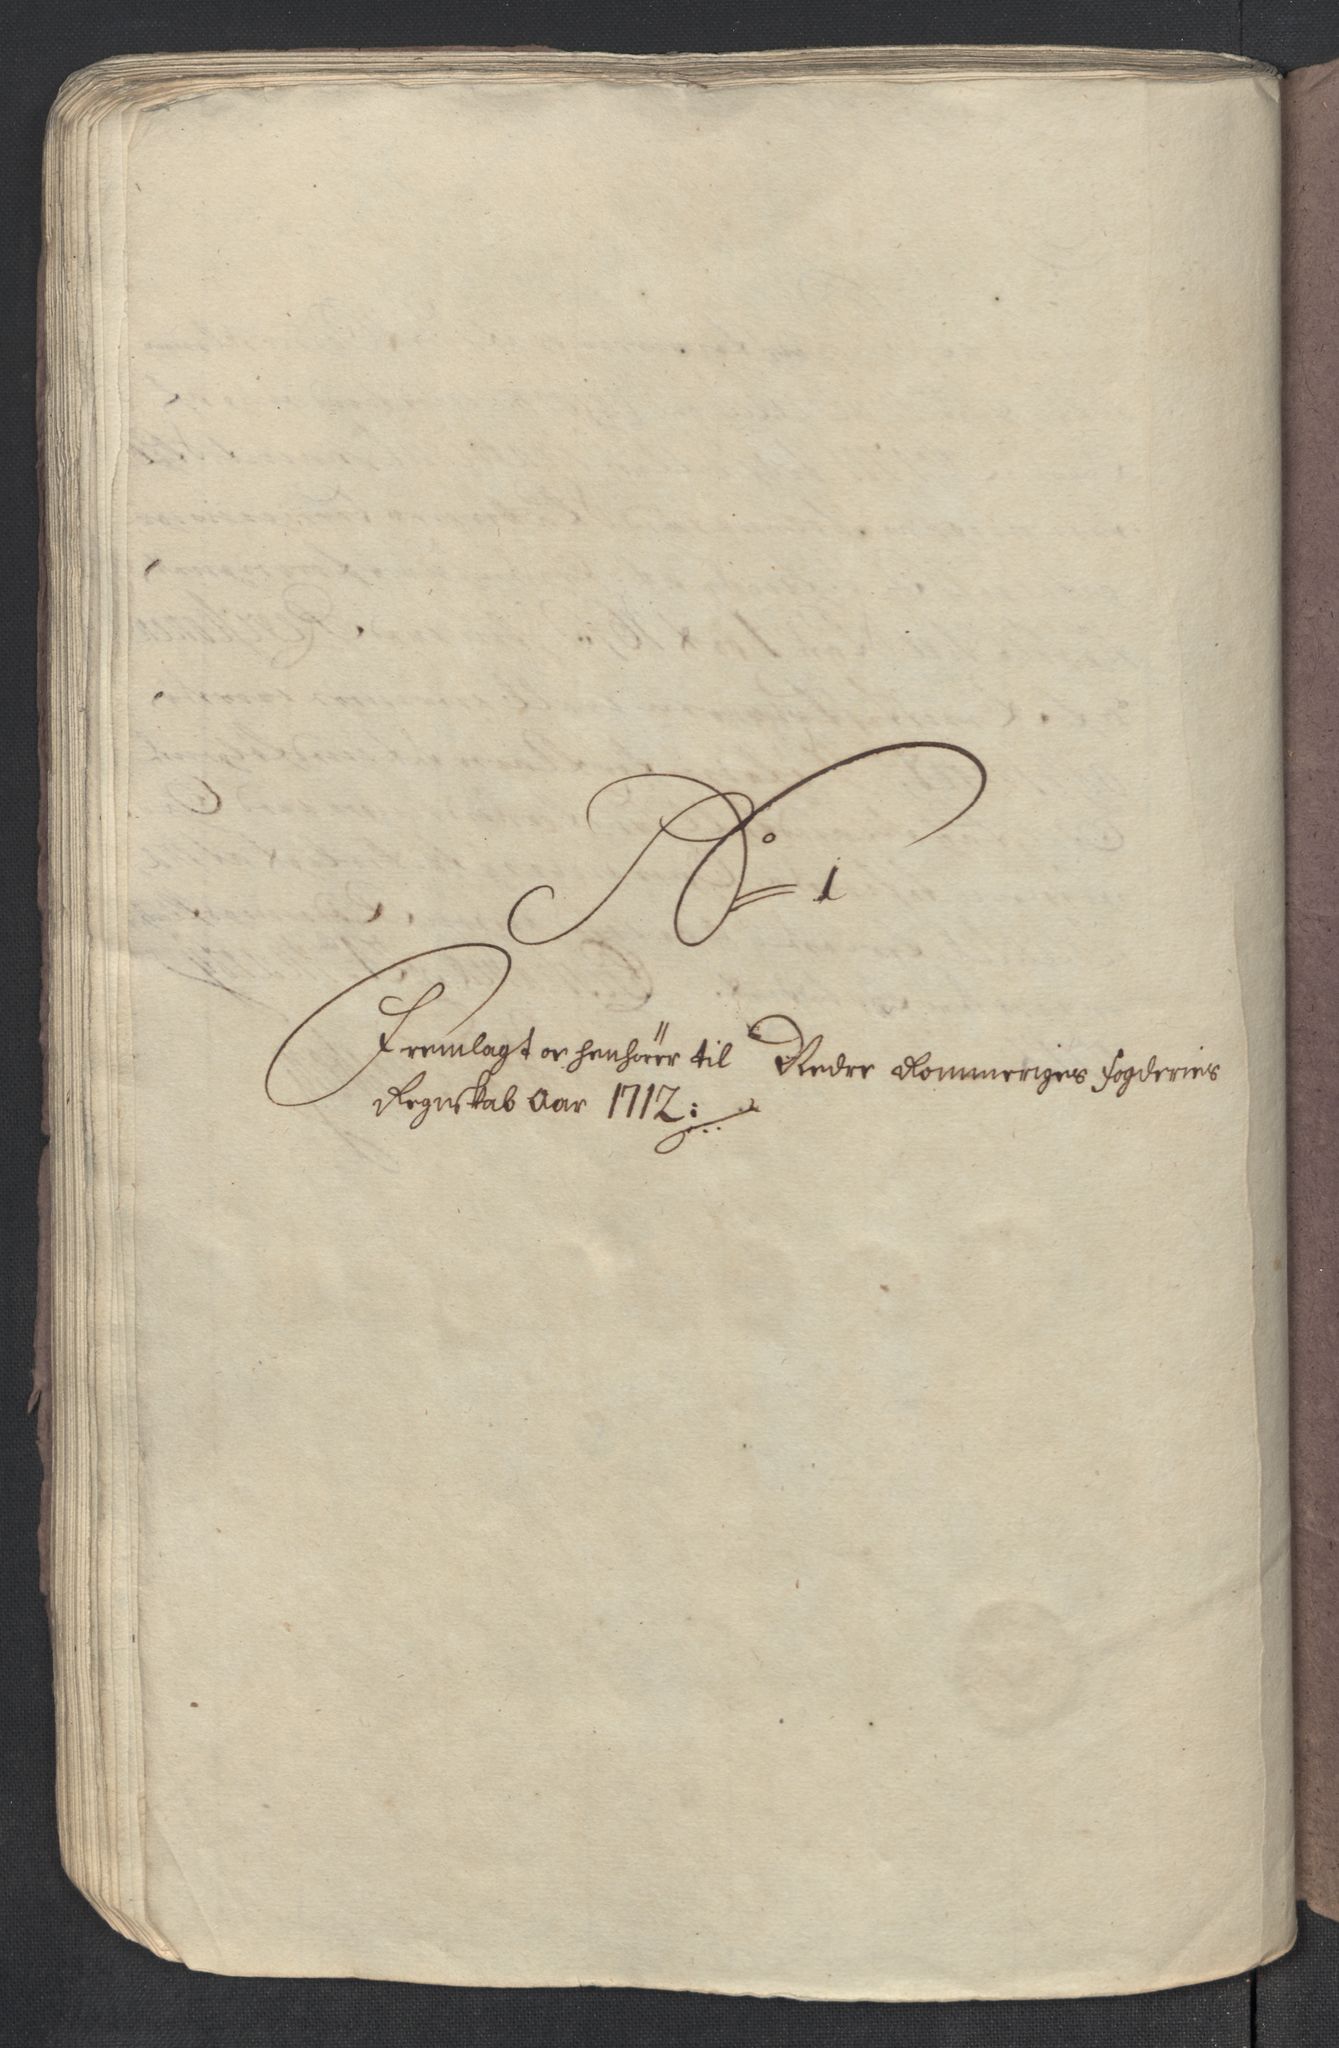 No 1
Fremlagt oc henhörer til Nedre Rommeriges fogderies
Regnskab Aar 1712: